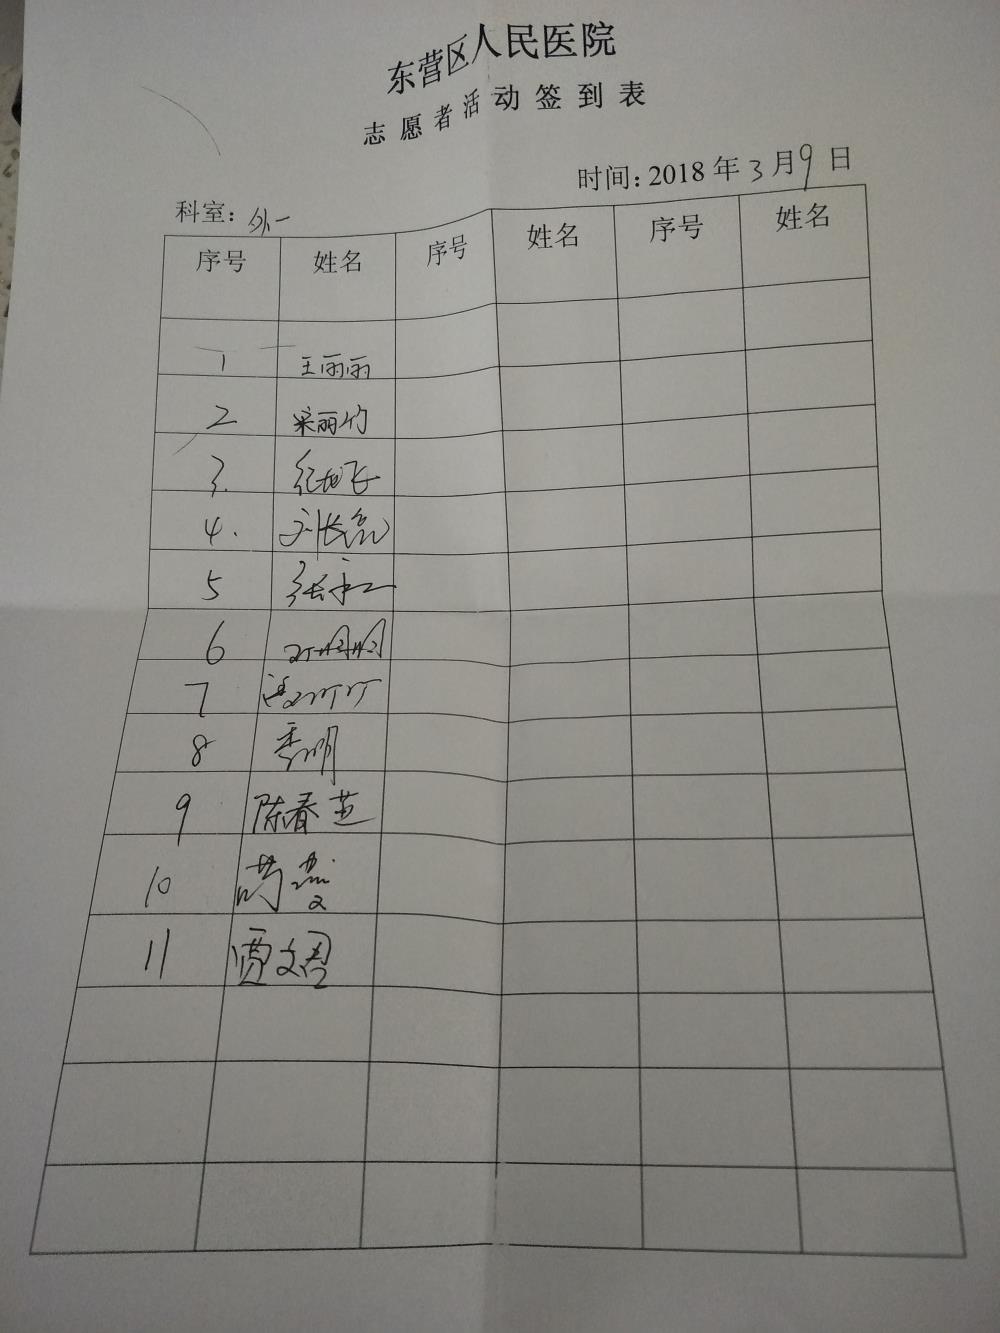 东营区人民医院
志愿者活动签到表
时间: 2018 年 3 月 9 日
科室: 外一
序号 姓名 序号 姓名 序号 姓名
1 王丽丽
2 梁丽竹
3.
4. 刘长亮
5 张永江
6
7
8 季明
9 陈春芝
10
11 贾文君